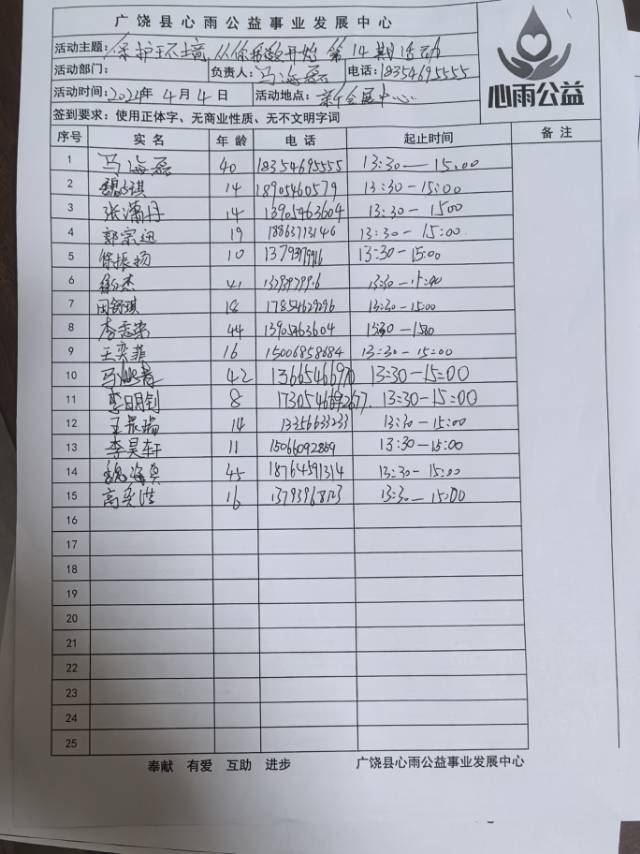 广饶县心雨公益事业发展中心
活动主题: 保护环境 从你我做开始 第14期活动
活动部门: 负责人: 马海磊 电话: 18354695555
活动时间: 2024年4月4日 活动地点: 会展中心
签到要求: 使用正体字、无商业性质、无不文明字词
心雨公益
序号 实名 年龄 电话 起止时间 备注
1 马海磊 40 18354695555 13:30—15:00
2 14 18905460579 13:30-15:00
3 张潇月 14 13905463604 13:30-1500
4 郭宗迅 19 18863713146 13:30-15:00
5 徐振扬 10 13:30-15:00
6 41 13:30-
7 田舒琪 18 17854629096 13:30-15:00
8 44 13905463604 1330-1500
9 王奕菲 16 15006858684 13:30-15:00
10 42 13:30-15:00
11 李明钊 8 13:30-15:00
12 14 13356633233 13:30-15:00
13 李昊轩 11 15066092859 13:30-15:00
14 45 18764591314 13:30-15:00
15 高奕浩 16 13:30-15:00
16
17
18
19
20
21
22
23
24
25
奉献 有爱 互助 进步 广饶县心雨公益事业发展中心